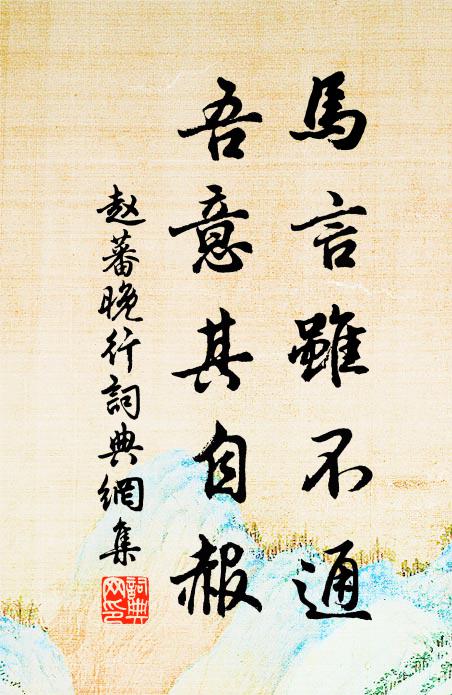 馬言雖不通
吾意其自赧
赵蕃晚行詞典網集
詞典